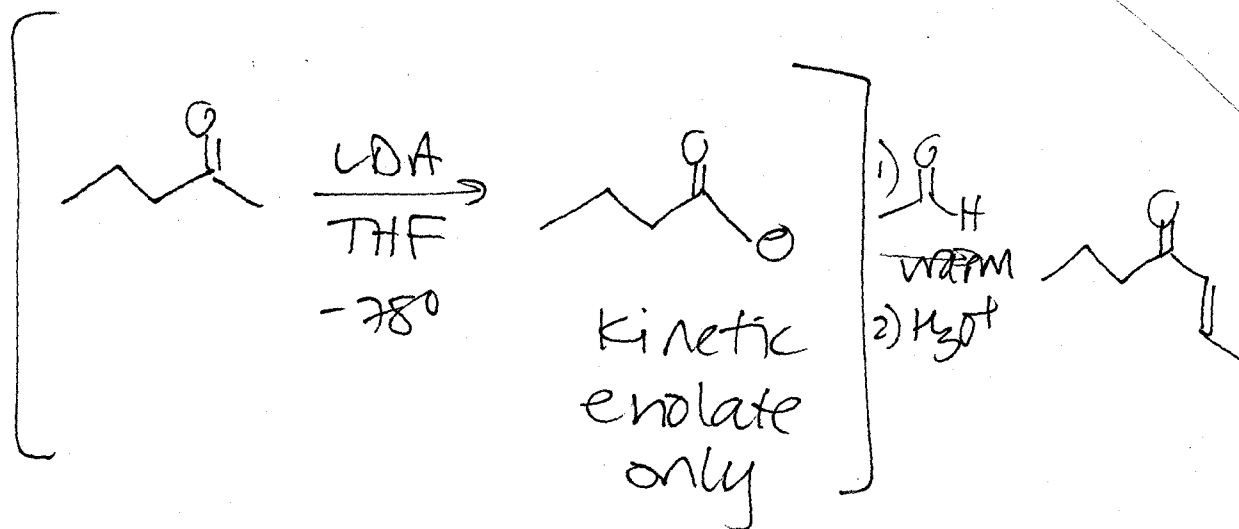 O
LDA
THF
-78°
O
⊖
Kinetic
enolate
only
1) O
H
warm
2) H3O+
O